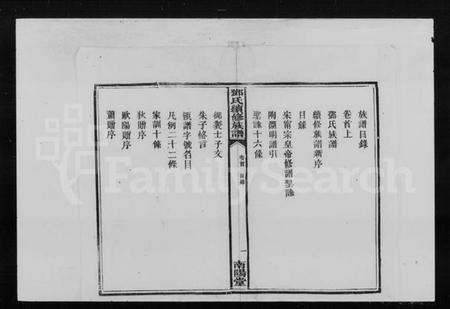 族譜目錄
卷首上
鄧氏族譜
續修族譜新序
目錄
宋甯宗皇帝修譜聖諭
陶淵明譜引
聖諭十六條
鄧氏續修族譜
卷首 目錄
一
南陽堂
御製士子文
朱子格言
派譜字號名目
凡例二十二條
家訓十條
狄贈序
歐陽贈序
蕭贈序
FamilySearch